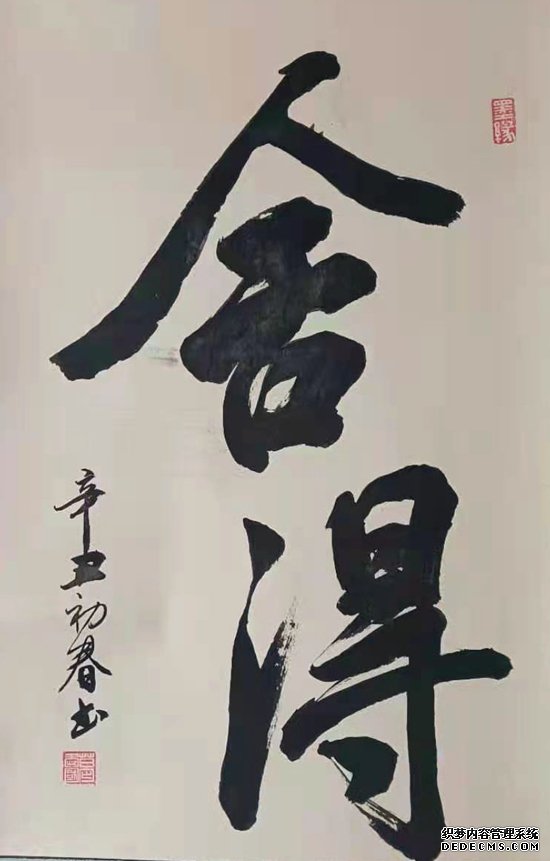 舍得
辛丑初春书
墨缘
织梦内容管理系统
DEDECMS.COM